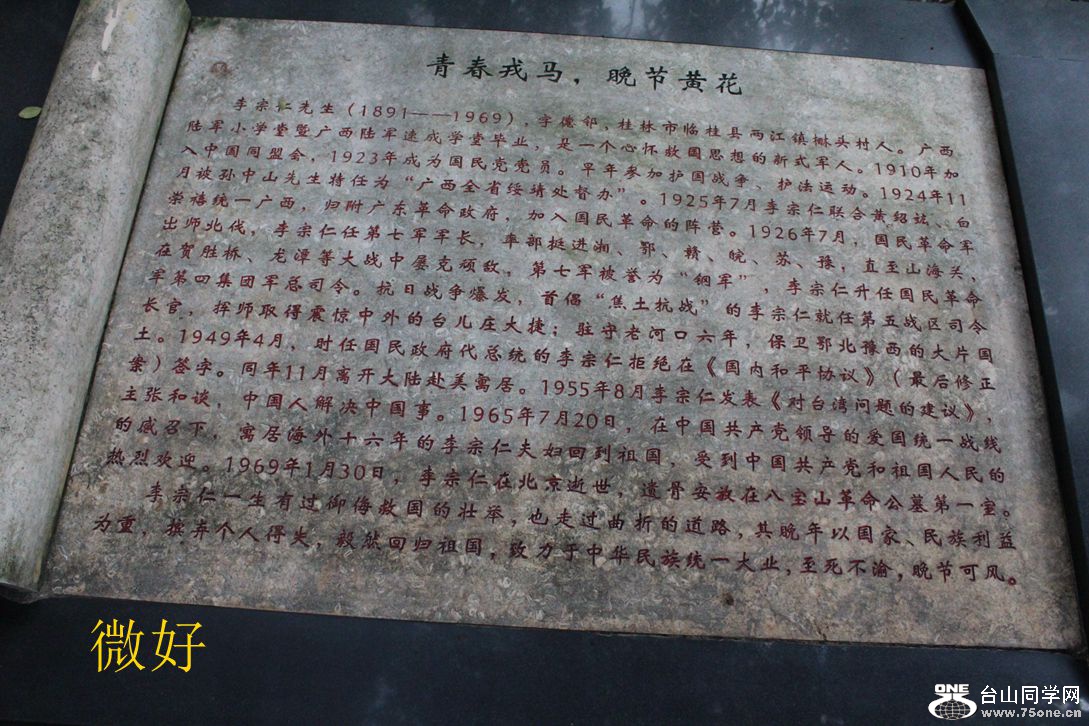 青春戎马，晚节黄花
李宗仁先生（1891——1969），字德邻，桂林市临桂县两江镇㮟头村人。广西
陆军小学堂暨广西陆军速成学堂毕业，是一个心怀救国思想的新式军人。1910年加
入中国同盟会，1923年成为国民党党员。早年参加护国战争、护法运动。1924年11
月被孙中山先生特任为“广西全省绥靖处督办”。1925年7月李宗仁联合黄绍竑、白
崇禧统一广西，归附广东革命政府，加入国民革命的阵营。1926年7月，国民革命军
出师北伐，李宗仁任第七军军长，率部挺进湘、鄂、赣、皖、苏、豫，直至山海关，
在贺胜桥、龙潭等大战中屡克顽敌，第七军被誉为“钢军”，李宗仁升任国民革命
军第四集团军总司令。抗日战争爆发，首倡“焦土抗战”的李宗仁就任第五战区司令
长官，挥师取得震惊中外的台儿庄大捷；驻守老河口六年，保卫鄂北豫西的大片国
土。1949年4月，时任国民政府代总统的李宗仁拒绝在《国内和平协议》（最后修正
案）签字。同年11月离开大陆赴美寓居。1955年8月李宗仁发表《对台湾问题的建议》，
主张和谈，中国人解决中国事。1965年7月20日，在中国共产党领导的爱国统一战线
的感召下，寓居海外十六年的李宗仁夫妇回到祖国，受到中国共产党和祖国人民的
热烈欢迎。1969年1月30日，李宗仁在北京逝世，遗骨安放在八宝山革命公墓第一室。
李宗仁一生有过御侮救国的壮举，也走过曲折的道路，其晚年以国家、民族利益
为重，摈弃个人得失，毅然回归祖国，致力于中华民族统一大业，至死不渝，晚节可风。
微好
ONE 台山同学网
www.75one.cn